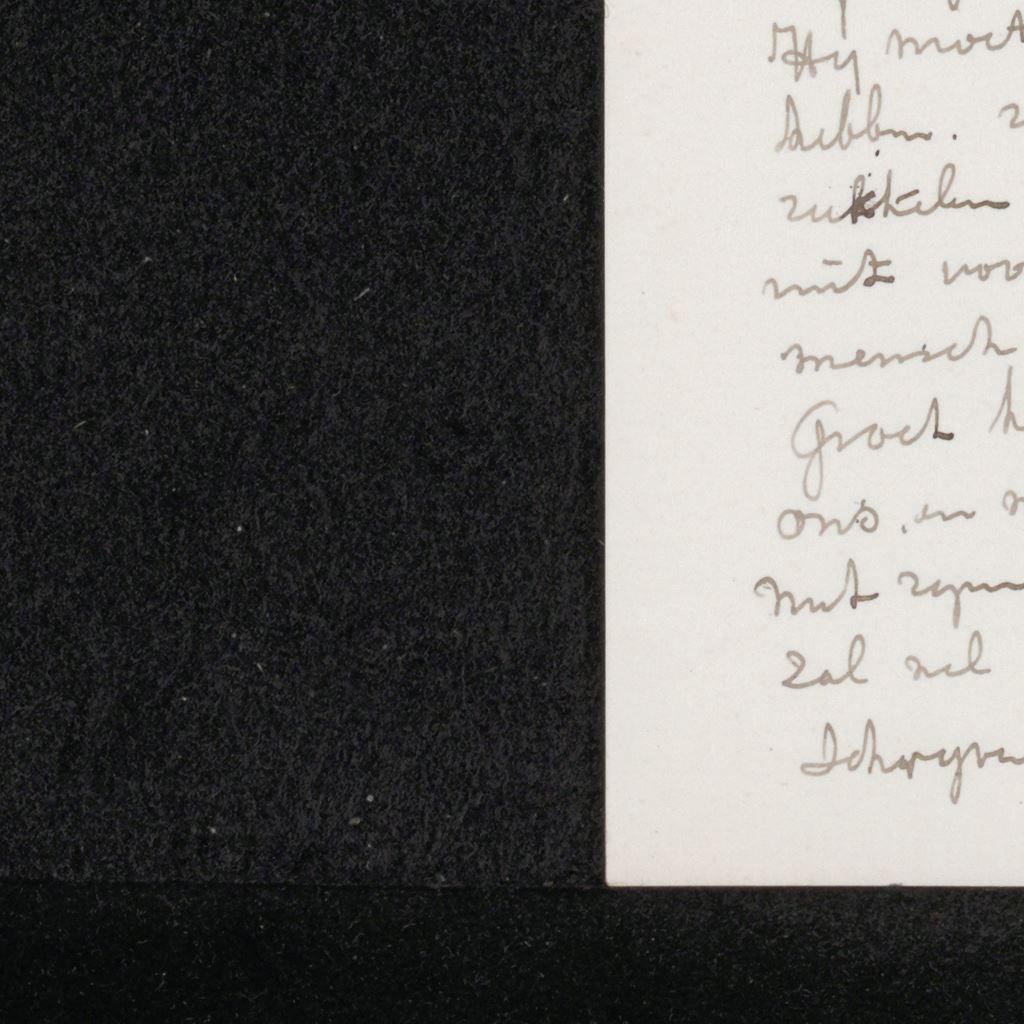 Hy moet
hebben.
sukkelen
niet voo
mensch
Groet h
ons en
met zyn
zal wel
Schryven